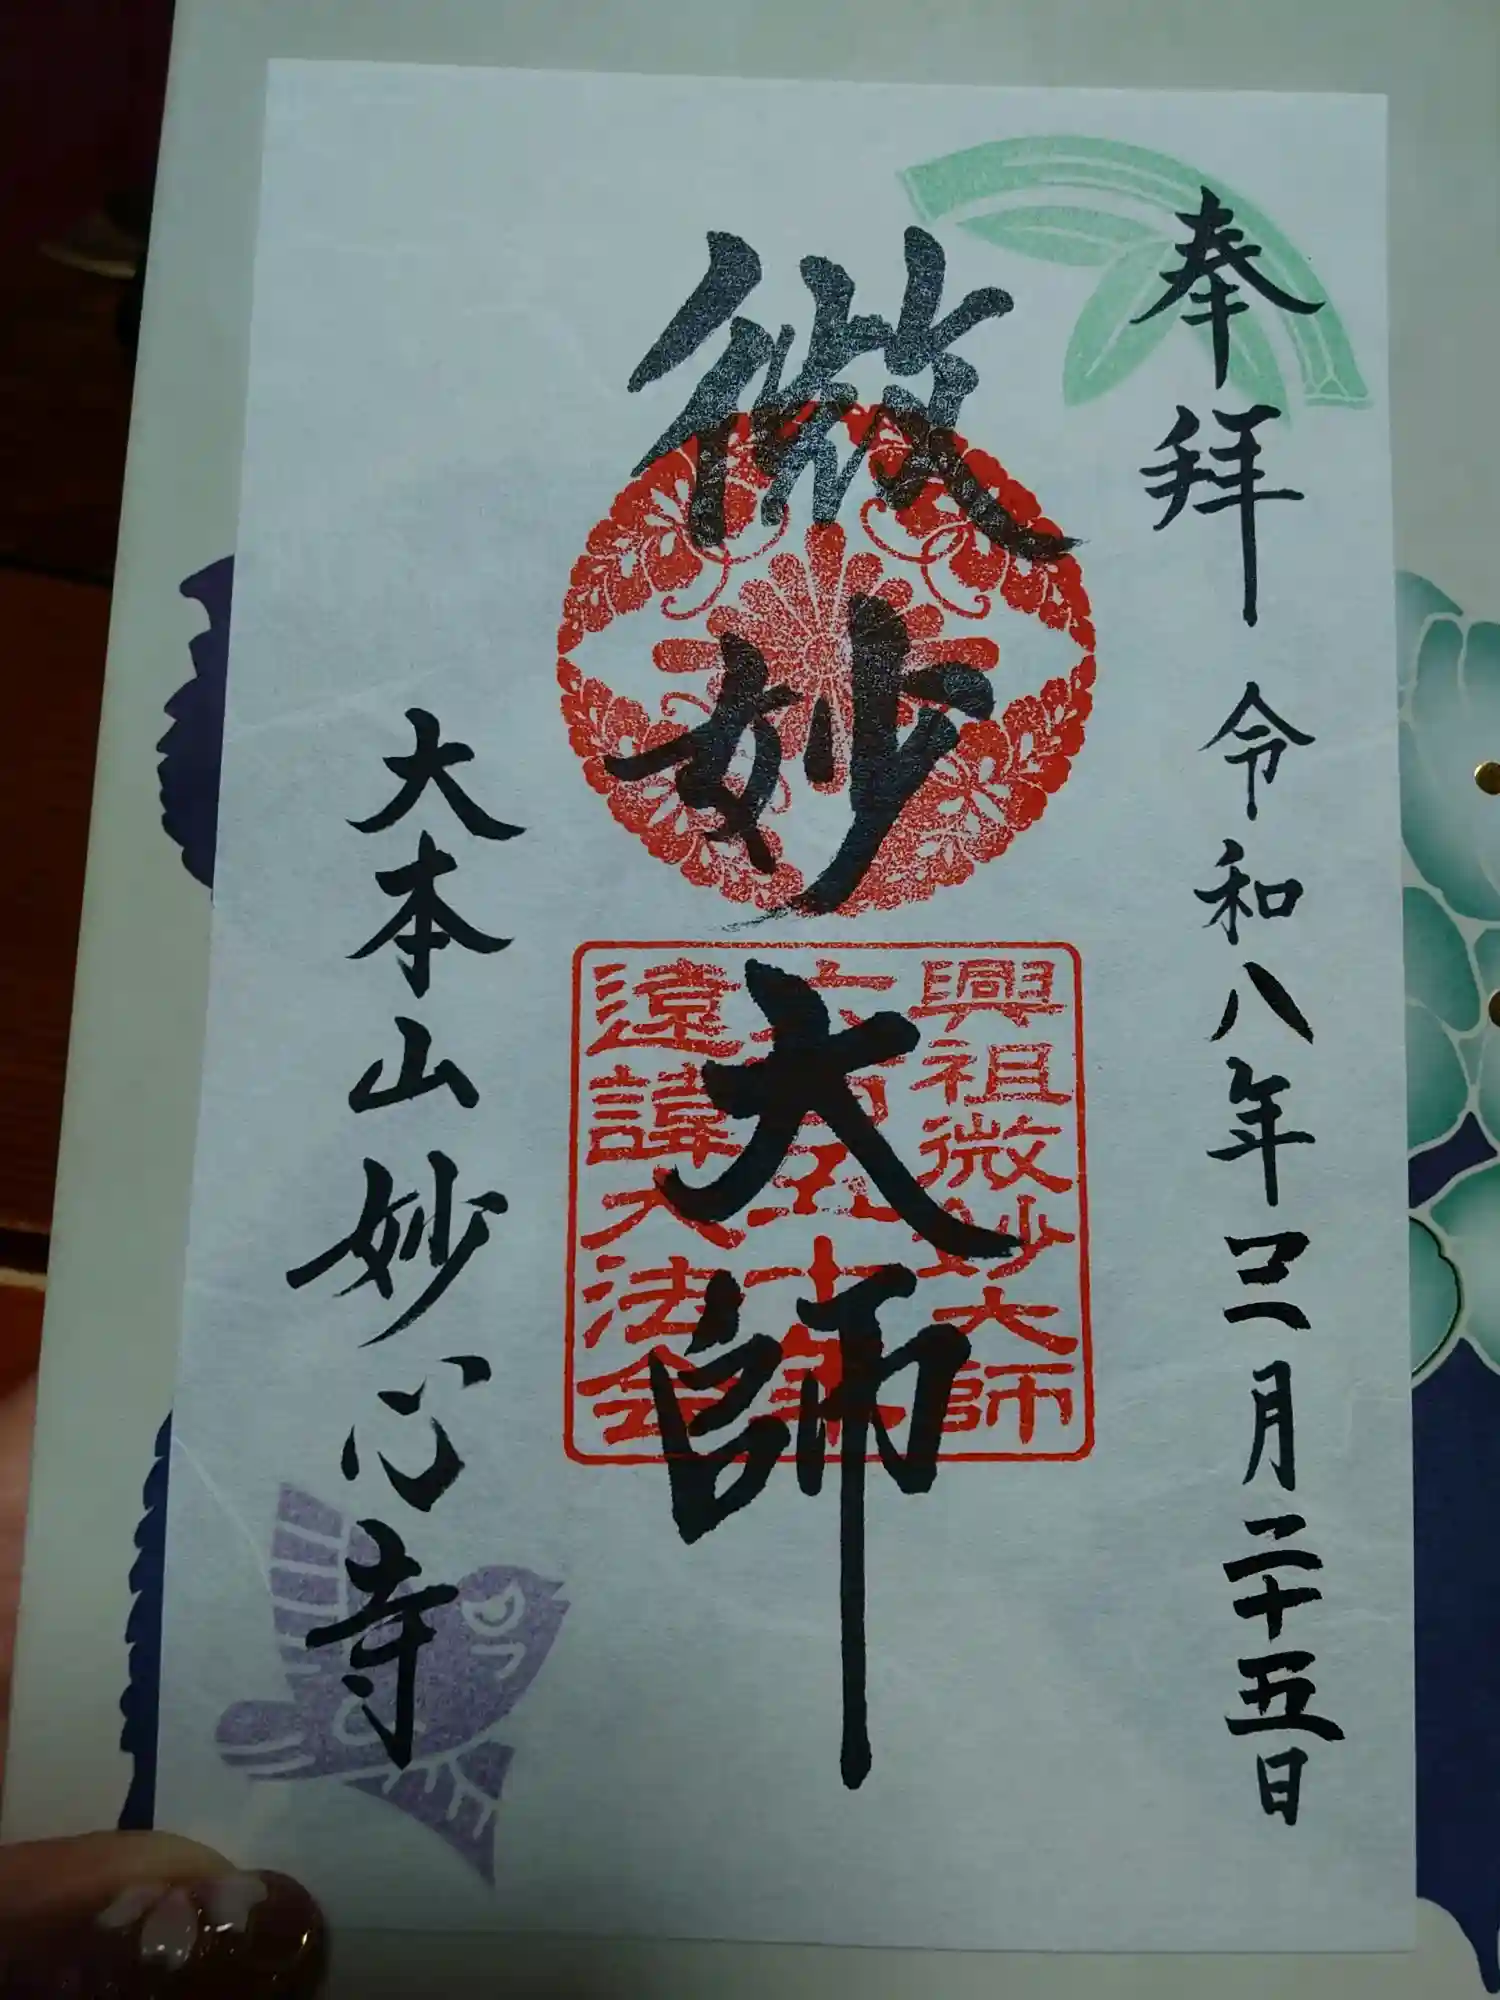 奉拝 令和八年三月二十五日
微妙大師
興祖微妙大師
六百五十年
遠諱大法会
大本山妙心寺